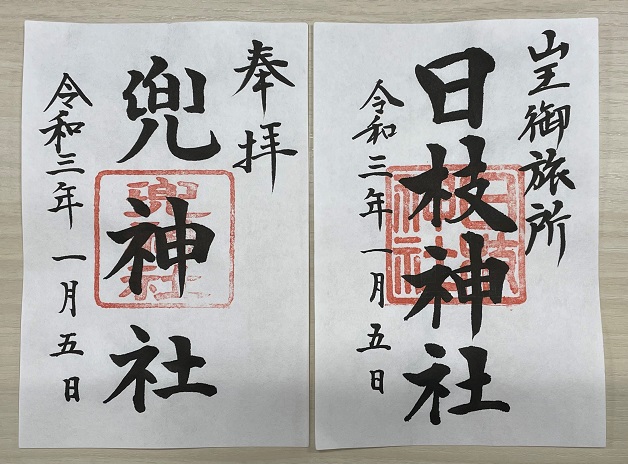 山王御旅所
日枝神社
令和三年一月五日
日枝神社
奉拝
兜神社
令和三年一月五日
兜神社